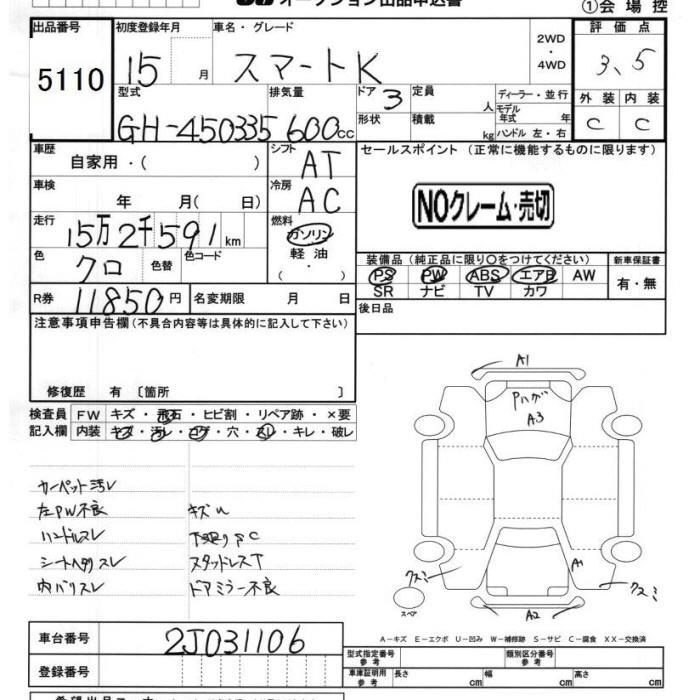 オークション出品申込書
①会場控
出品番号 5110
初度登録年月 15 月
車名・グレード スマートK
2WD・4WD
評価点 3、5
型式 GH-450335
排気量 600cc
ドア 3
形状
定員 人
積載 kg
ディーラー・並行
モデル年式 年
ハンドル 左・右
外装 C
内装 C
車歴 自家用・( )
シフト AT
セールスポイント (正常に機能するものに限ります)
車検 年 月( 日)
冷房 AC
NOクレーム・売切
走行 15万2千591km
燃料 ガソリン 軽油 ( ・ )
色 クロ
色替
色コード
装備品 (純正品に限り○をつけてください)
新車保証書
PS PW ABS エアB AW
有・無
SR ナビ TV カワ
R券 11850円
名変期限 月 日
後日品
注意事項申告欄(不具合内容等は具体的に記入して下さい)
修復歴 有 〔箇所 〕
検査員記入欄
FW キズ・飛石・ヒビ割・リペア跡・×要
内装 キズ・汚レ・コゲ・穴・スレ・キレ・破レ
カーペット汚レ
左PW不良
ハンドルスレ
シートヘタリスレ
内バリスレ
キズU
下廻りSC
スタッドレスT
ドアミラー不良
A1
Pハゲ
A3
A1
クスミ
クスミ
スペア
A2
A-キズ E-エクボ U-凹み W-補修跡 S-サビ C-腐食 XX-交換済
車台番号 2J031106
登録番号
型式指定番号 参考
類別区分番号 参考
車庫証明用 参考
長さ cm
幅 cm
高さ cm